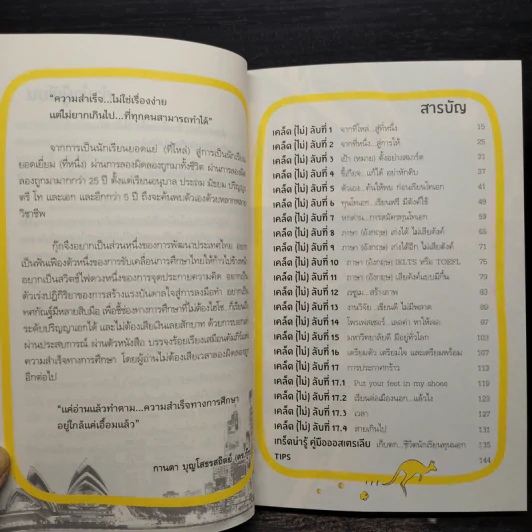 "ความสำเร็จ...ไม่ใช่เรื่องง่าย
แต่ไม่ยากเกินไป...ที่ทุกคนสามารถทำได้"
จากการเป็นนักเรียนยอดแย่ (ที่โหล่) สู่การเป็นนักเรียน
ยอดเยี่ยม (ที่หนึ่ง) ผ่านการลองผิดลองถูกมาทั้งชีวิต ผ่านการลองผิด
ลองถูกมามากกว่า 25 ปี ตั้งแต่เรียนอนุบาล ประถม มัธยม ปริญญา
ตรี โท และเอก และอีกกว่า 5 ปี ถึงจะค้นพบตัวเองด้วย
วิชาชีพ
กุ๊กจึงอยากเป็นส่วนหนึ่งของการพัฒนาประเทศไทย อยาก
เป็นฟันเฟืองตัวหนึ่งของการขับเคลื่อนการศึกษาไทยให้ก้าวไปข้างหน้า
อยากเป็นสวิตช์ไฟดวงหนึ่งของการจุดประกายความคิด อยากเป็น
ตัวเร่งปฏิกิริยาของการสร้างแรงบันดาลใจสู่การลงมือทำ อยากเป็น
ระดับปริญญาเอกได้ และไม่ต้องเสียเงินเลยสักบาท ด้วยการบอก
ผ่านประสบการณ์ ผ่านตัวหนังสือ บรรจงร้อยเรียงเสมือนคัมภีร์
ความสำเร็จทางการศึกษา โดยผู้อ่านไม่ต้องเสียเวลาลองผิดลองถูก
อีกต่อไป
"แค่อ่านแล้วทำตาม...ความสำเร็จทางการศึกษา
อยู่ใกล้แค่เอื้อมแล้ว"
กานดา บุญโสธรสถิตย์ (ดร.กุ๊ก)
สารบัญ
เคล็ด (ไม่) ลับที่ 1 จากที่โหล่...สู่ที่หนึ่ง 15
เคล็ด (ไม่) ลับที่ 2 จากที่หนึ่ง...สู่การให้ 25
เคล็ด (ไม่) ลับที่ 3 เป้า (หมาย) ตั้งอย่างสมาร์ต 31
เคล็ด (ไม่) ลับที่ 4 ขี้เกียจ...แก้ได้ อย่าหักดิบ 37
เคล็ด (ไม่) ลับที่ 5 ตัวเอง...ค้นให้พบ ก่อนเรียนโทนอก 41
เคล็ด (ไม่) ลับที่ 6 ทุนโทนอก...เรียนฟรี มีตังค์ใช้ 49
เคล็ด (ไม่) ลับที่ 7 หกด่าน...การสมัครทุนโทนอก 57
เคล็ด (ไม่) ลับที่ 8 ภาษา (อังกฤษ) เก่งได้ ไม่เสียตังค์ 63
เคล็ด (ไม่) ลับที่ 9 ภาษา (อังกฤษ) เก่งได้อีก ไม่เสียตังค์ 71
เคล็ด (ไม่) ลับที่ 10 ภาษา (อังกฤษ) IELTS หรือ TOEFL 75
เคล็ด (ไม่) ลับที่ 11 ภาษา (อังกฤษ) เสียตังค์แบบมีกึ๋น 79
เคล็ด (ไม่) ลับที่ 12 เรซูเม่...สร้างภาพ 83
เคล็ด (ไม่) ลับที่ 13 งานวิจัย...เขียนดี ไม่มีพลาด 89
เคล็ด (ไม่) ลับที่ 14 โพรเฟสเซอร์...เลอค่า หาให้เจอ 97
เคล็ด (ไม่) ลับที่ 15 มหาวิทยาลัยดี มีอยู่ทั่วโลก 103
เคล็ด (ไม่) ลับที่ 16 เตรียมตัว เตรียมใจ และเตรียมพร้อม 107
เคล็ด (ไม่) ลับที่ 17 การประกาศกร้าว 113
เคล็ด (ไม่) ลับที่ 17.1 Put your feet in my shoes 119
เคล็ด (ไม่) ลับที่ 17.2 เรียนต่อเมืองนอก...แล้วไง 121
เคล็ด (ไม่) ลับที่ 17.3 เวลา 127
เคล็ด (ไม่) ลับที่ 17.4 สายเกินไป 131
เกร็ดน่ารู้ คู่มือออสเตรเลีย 135
TIPS 144